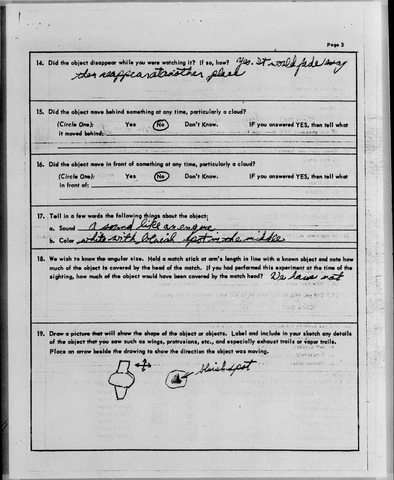 Page 3
14. Did the object disappear while you were watching it? If so, how? Yes. It would fade away
then reappear at another place
15. Did the object move behind something at any time, particularly a cloud?
(Circle One): Yes No Don't Know. IF you answered YES, then tell what
it moved behind:
16. Did the object move in front of something at any time, particularly a cloud?
(Circle One): Yes No Don't Know. IF you answered YES, then tell what
in front of:
17. Tell in a few words the following things about the object:
a. Sound A sound like an engine
b. Color white with spot in the middle
18. We wish to know the angular size. Hold a match stick at arm's length in line with a known object and note how
much of the object is covered by the head of the match. If you had performed this experiment at the time of the
sighting, how much of the object would have been covered by the match head?
19. Draw a picture that will show the shape of the object or objects. Label and include in your sketch any details
of the object that you saw such as wings, protrusions, etc., and especially exhaust trails or vapor trails.
Place an arrow beside the drawing to show the direction the object was moving.
spot